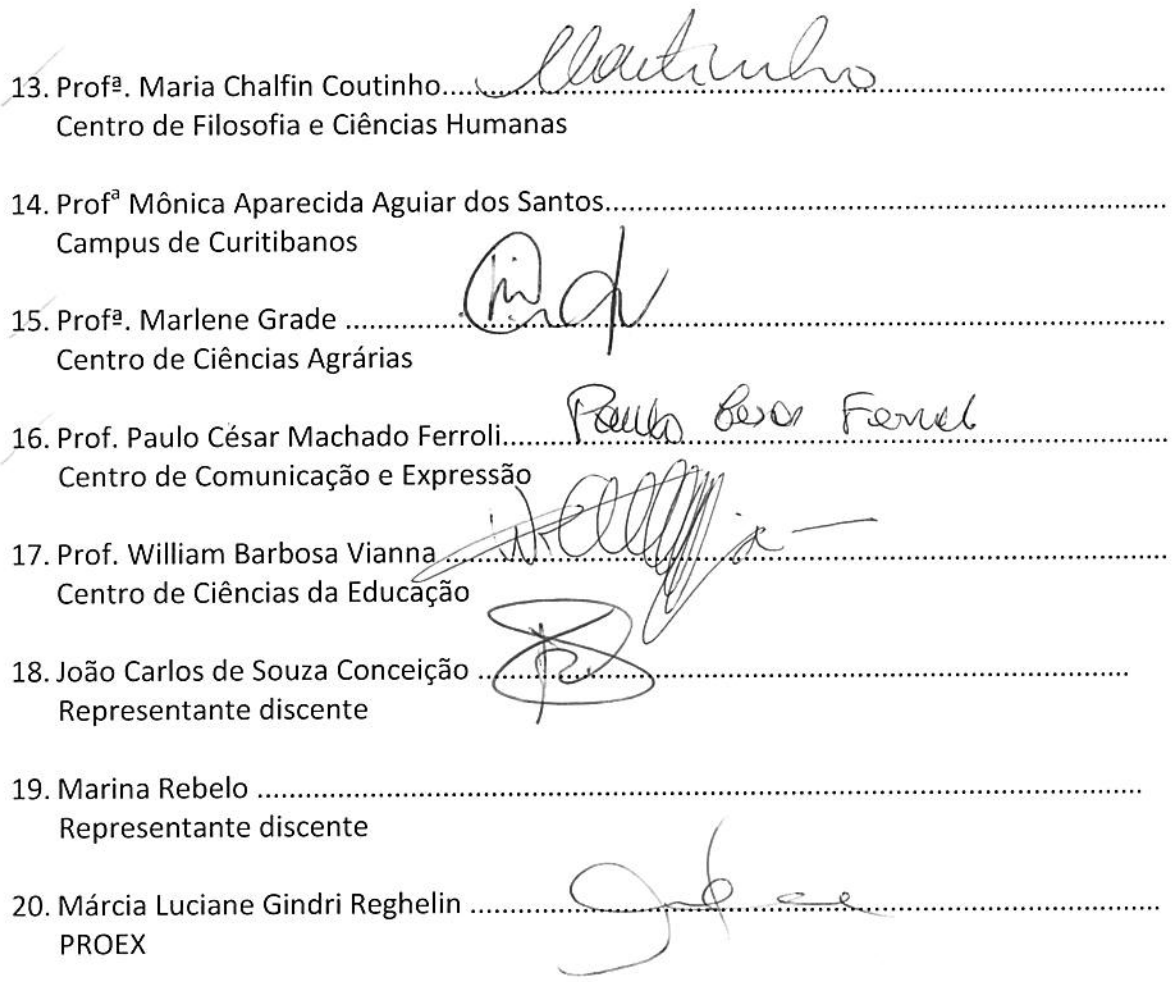 13. Profª. Maria Chalfin Coutinho................................................................
Centro de Filosofia e Ciências Humanas
14. Profª Mônica Aparecida Aguiar dos Santos................................................................
Campus de Curitibanos
15. Profª. Marlene Grade ................................................................
Centro de Ciências Agrárias
16. Prof. Paulo César Machado Ferroli................................................................
Paulo
Centro de Comunicação e Expressão
17. Prof. William Barbosa Vianna ................................................................
Centro de Ciências da Educação
18. João Carlos de Souza Conceição ................................................................
Representante discente
19. Marina Rebelo ................................................................
Representante discente
20. Márcia Luciane Gindri Reghelin ................................................................
PROEX